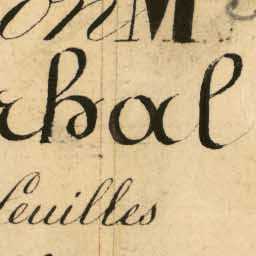 on M
rhal
feuilles